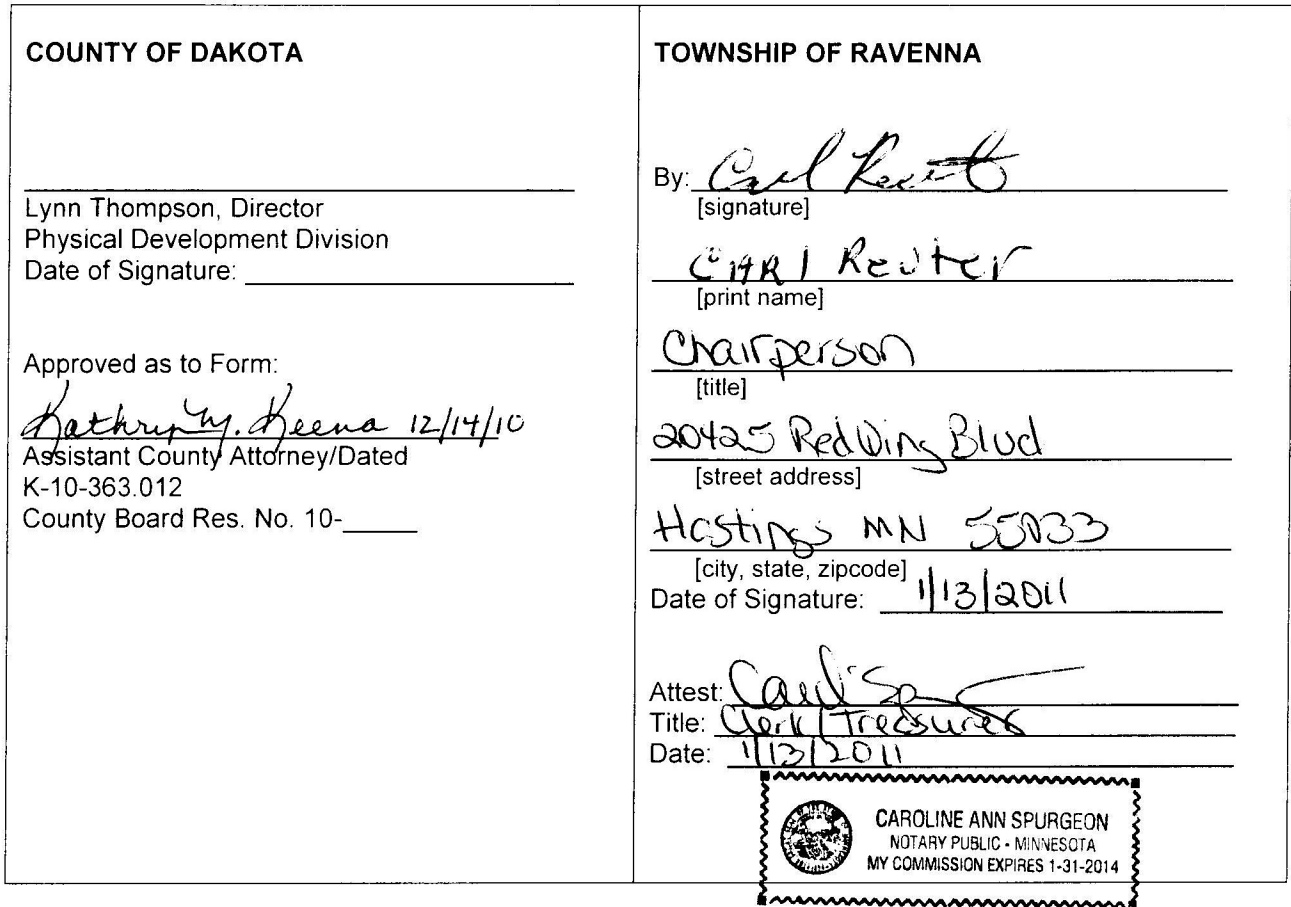 COUNTY OF DAKOTA
Lynn Thompson, Director
Physical Development Division
Date of Signature:
Approved as to Form:
Kathryn M. Keena 12/14/10
Assistant County Attorney/Dated
K-10-363.012
County Board Res. No. 10-
TOWNSHIP OF RAVENNA
By: Carl Reuter
[signature]
CARl Reuter
[print name]
Chairperson
[title]
20425 Red Wing Blvd
[street address]
Hastings MN 55033
[city, state, zipcode]
Date of Signature: 1/13/2011
Attest:
Title: Clerk/Treasurer
Date: 1/13/2011
CAROLINE ANN SPURGEON
NOTARY PUBLIC - MINNESOTA
MY COMMISSION EXPIRES 1-31-2014